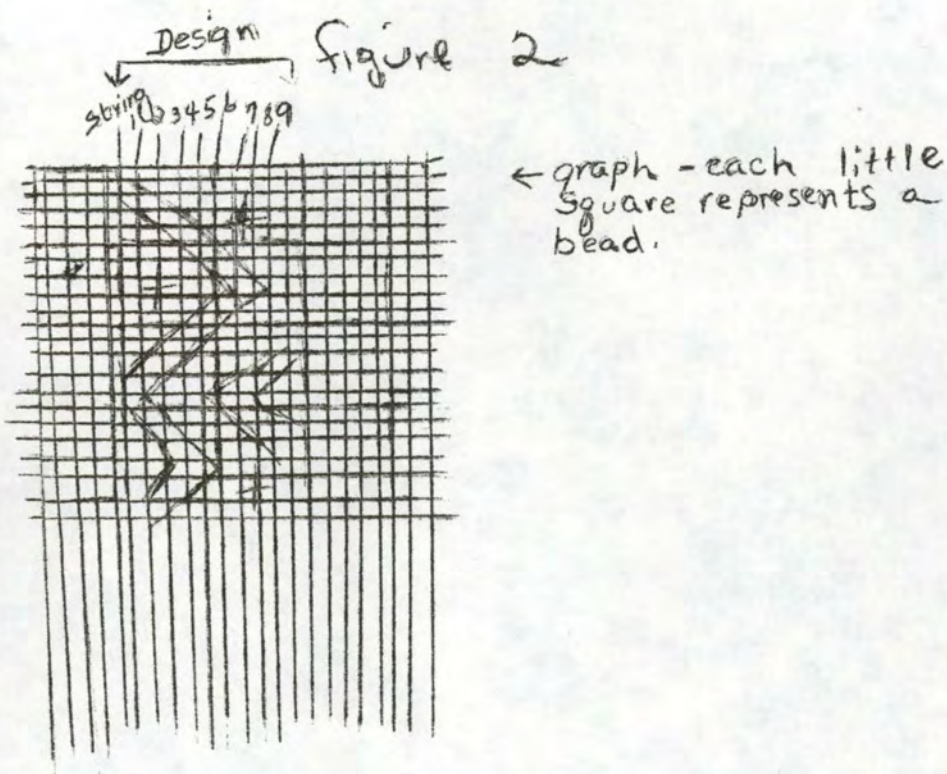 Design
figure 2
string
1 2 3 4 5 6 7 8 9
← graph - each little
square represents a
bead.